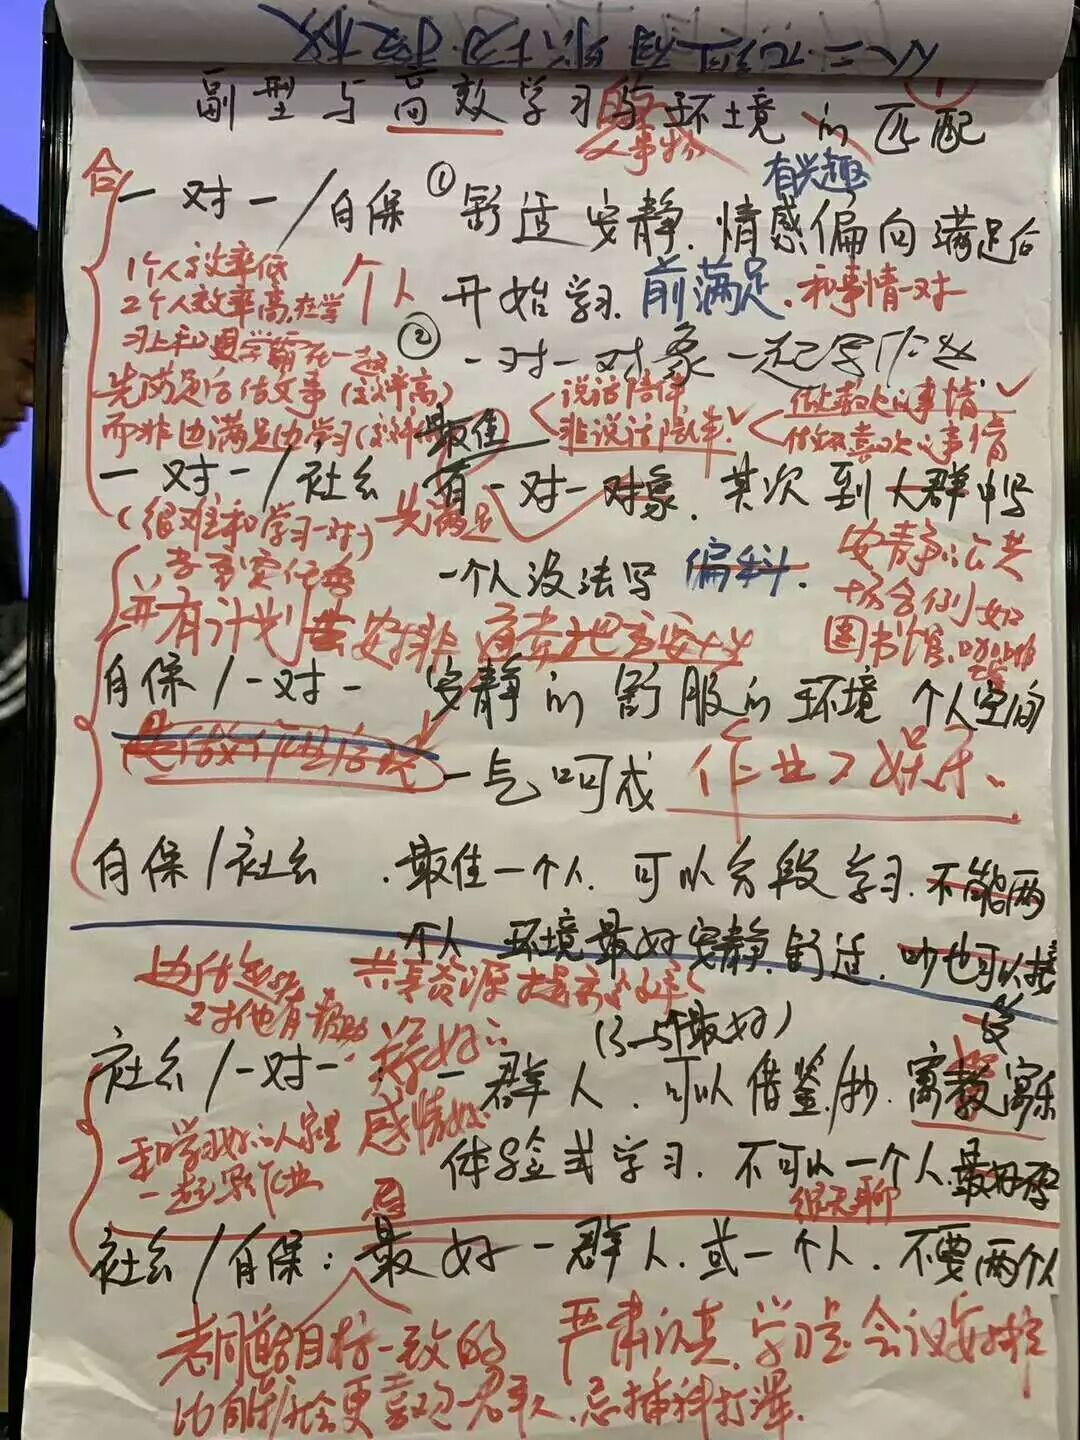 副型与高效学习与环境的匹配
人事物
有兴趣
合
一对一/自保 ① 舒适安静.情感偏向满足后
个人 开始学习.前满足.和事情一对一
1个人效率低
2个人效率高.在学
习上和
② 一对一对象一起写作业
先满足后做文事(效率高)
而非边满足边学习
最佳
说话陪伴
非说话陪伴
事情
做好喜欢事情
一对一/社会 有一对一对象.其次到人群中写
(很难和学习一对一) 先满足
一个人没法写 偏科.
安静公共
场合例如
图书馆
并有计划去安排
自保/一对一 安静的舒服的环境 个人空间
一气呵成
作业
自保/社会.最佳一个人.可以分段学习.不能两
个人 环境最好安静.舒适.吵也可以接
受
共享资源 提高效率
对他有帮助
(3-5个最好)
社会/一对一 一群人.可以借鉴/抄.寓教寓乐
关系好
感情好
体验式学习.不可以一个人.最好
和学习好的人家里
一起写作业
聊
社会/自保:最好一群人.或一个人.不要两个人
目标一致的
严肃认真.学习是
比自保/社会更喜欢一群人.忌插科打诨.